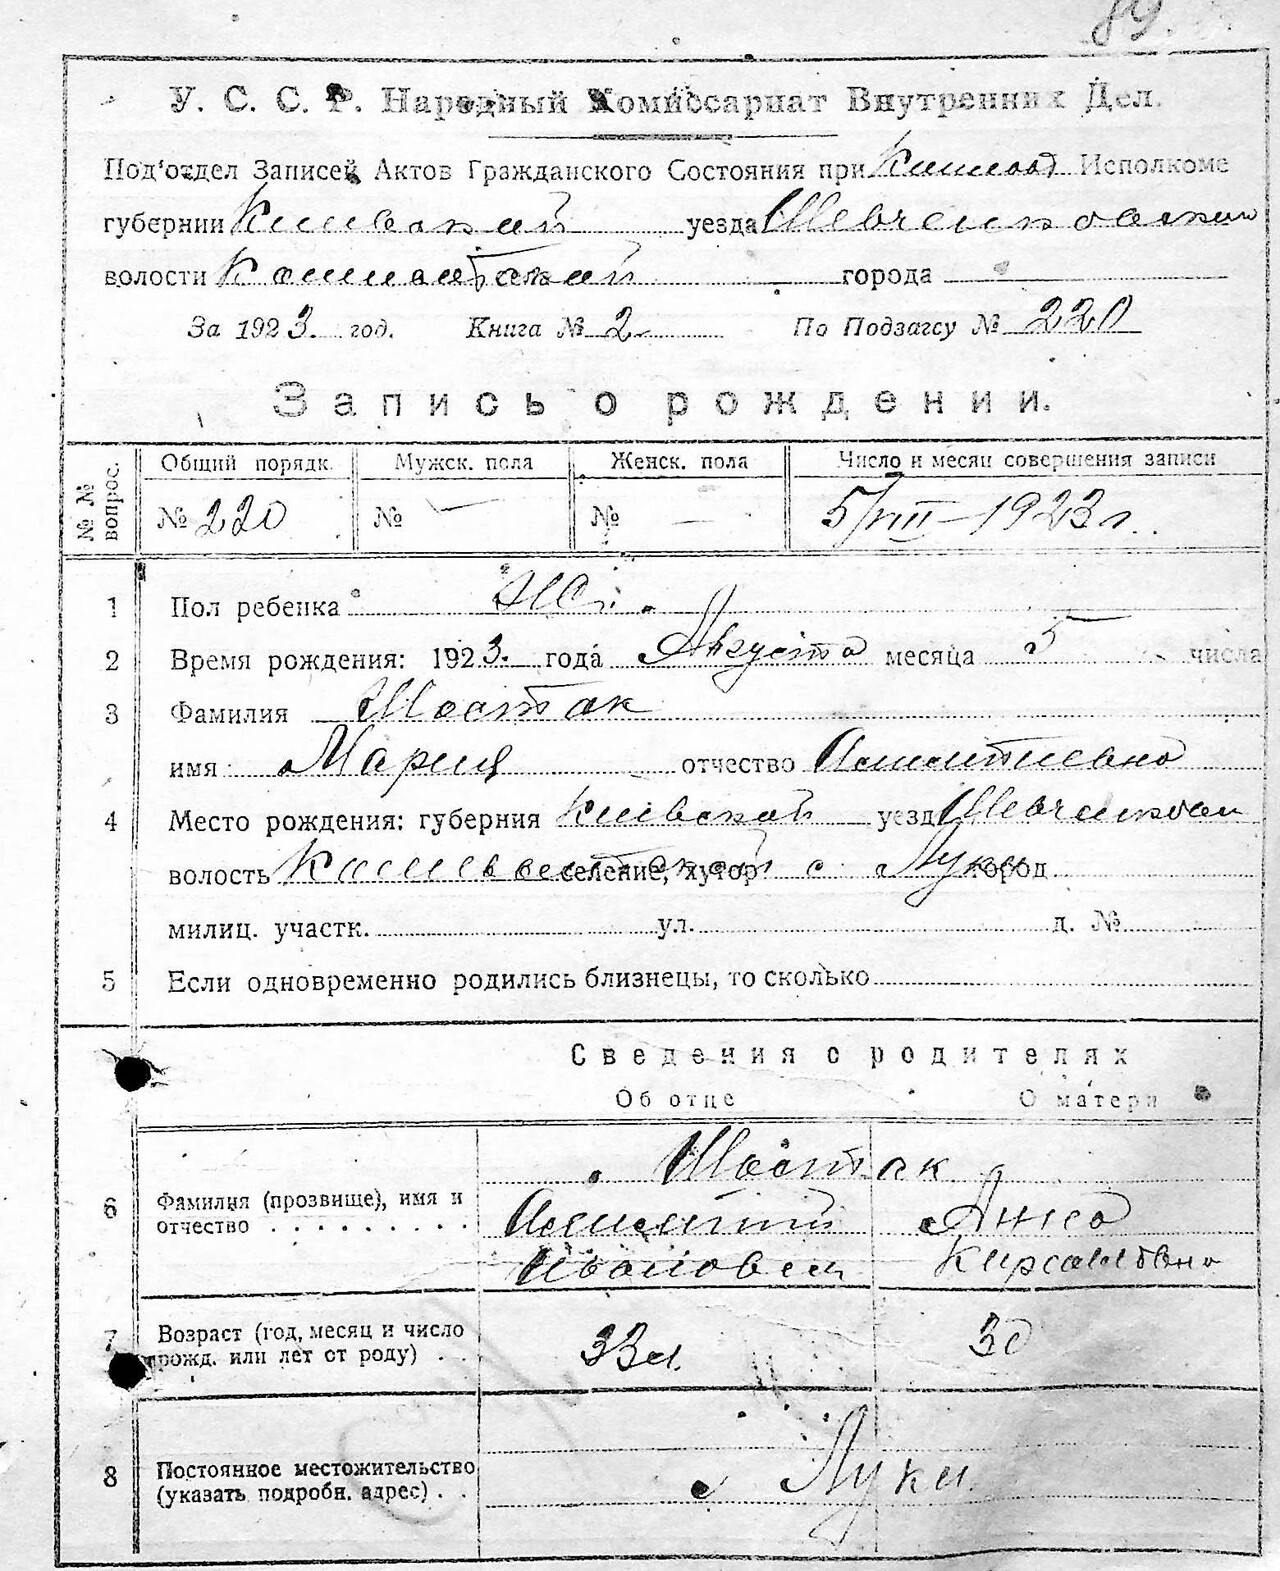 89.
У. С. С. Р. Народный Комиссариат Внутренних Дел.
Под'отдел Записей Актов Гражданского Состояния при Исполкоме
губернии Киевской уезда Шевченковский
волости города
За 1923. год. Книга № 2 По Подзагсу № 220
Запись о рождении.
№ № вопрос. Общий порядк. Мужск. пола Женск. пола Число и месяц совершения записи
№ 220 № — № — 5/VIII—1923 г.
1 Пол ребенка Ж.
2 Время рождения: 1923. года Августа месяца 5 числа
3 Фамилия Шостак
имя Мария отчество
4 Место рождения: губерния Киевской уезд
волость селение, хутор с город
милиц. участк. ул. д. №
5 Если одновременно родились близнецы, то сколько
Сведения о родителях
Об отце О матери
Шостак
6 Фамилия (прозвище), имя и
отчество . . . . . . . . . Анна
7 Возраст (год, месяц и число
рожд. или лет от роду) . . 33 л. 30
8 Постоянное местожительство
(указать подробн. адрес) . . с Луки.